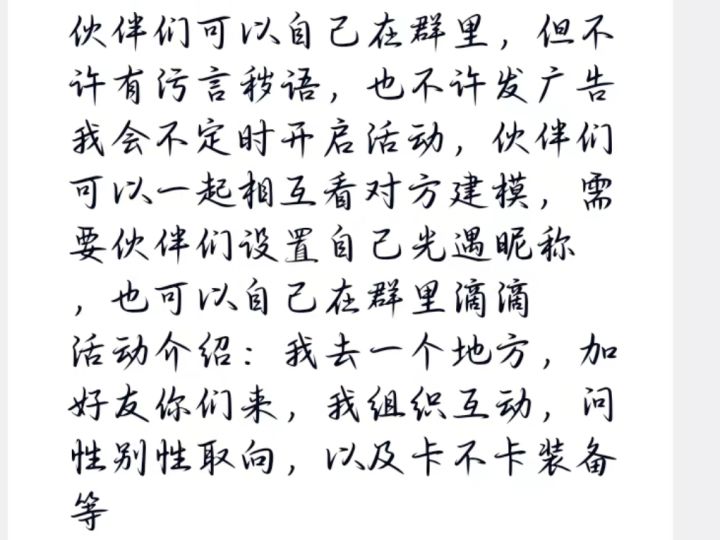 伙伴们可以自己在群里，但不
许有污言秽语，也不许发广告
我会不定时开启活动，伙伴们
可以一起相互看对方建模，需
要伙伴们设置自己光遇昵称
，也可以自己在群里滴滴
活动介绍：我去一个地方，加
好友你们来，我组织互动，问
性别性取向，以及卡不卡装备
等